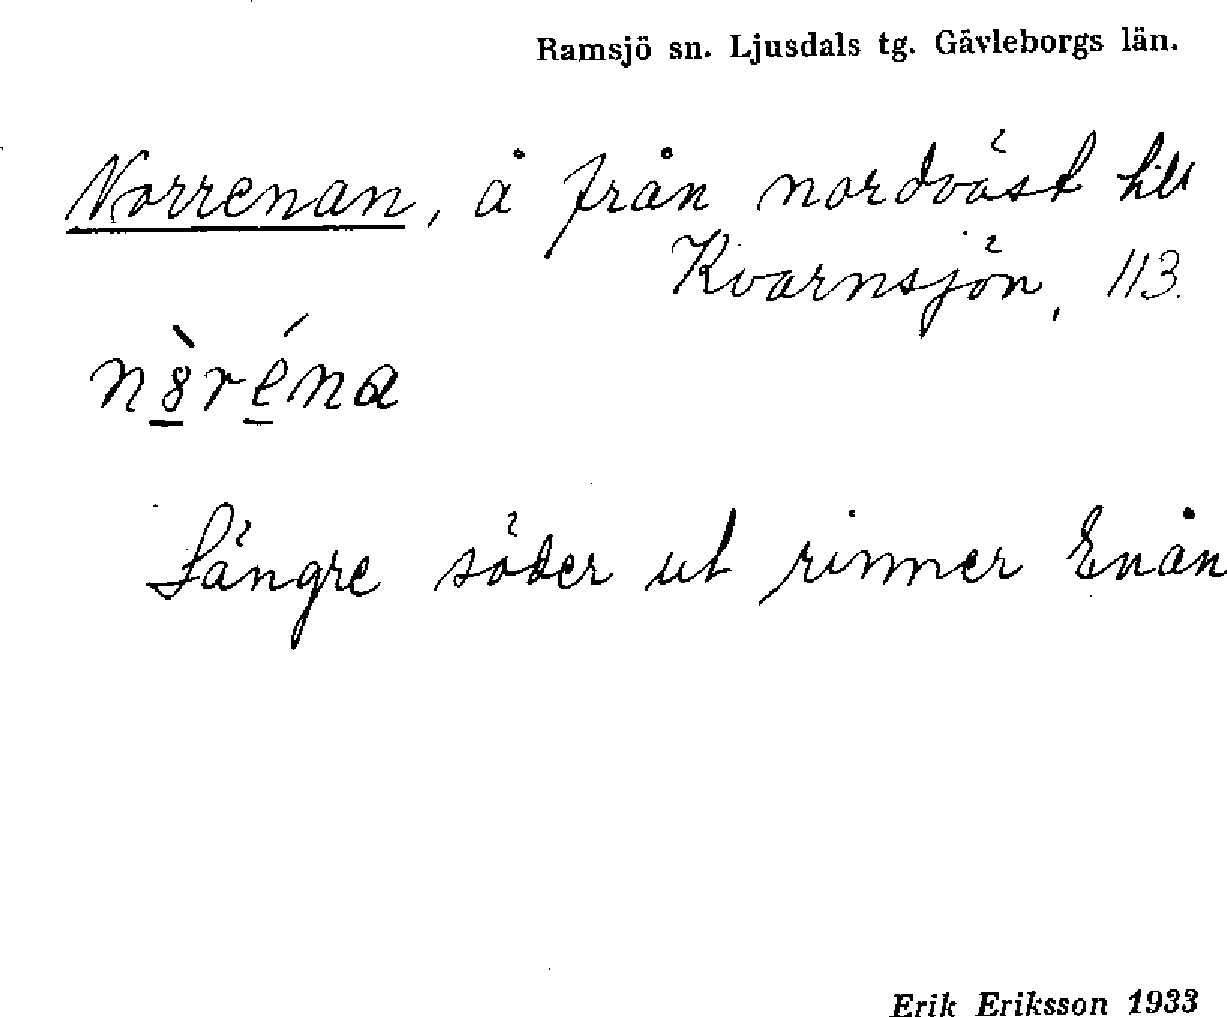 Ramsjö sn. Ljusdals tg. Gävleborgs län.
Norrenan, å från nordväst till
Kvarnsjön, 113.
n8̲̀ré̲na
Längre söder ut rinner Enån
Erik Eriksson 1933